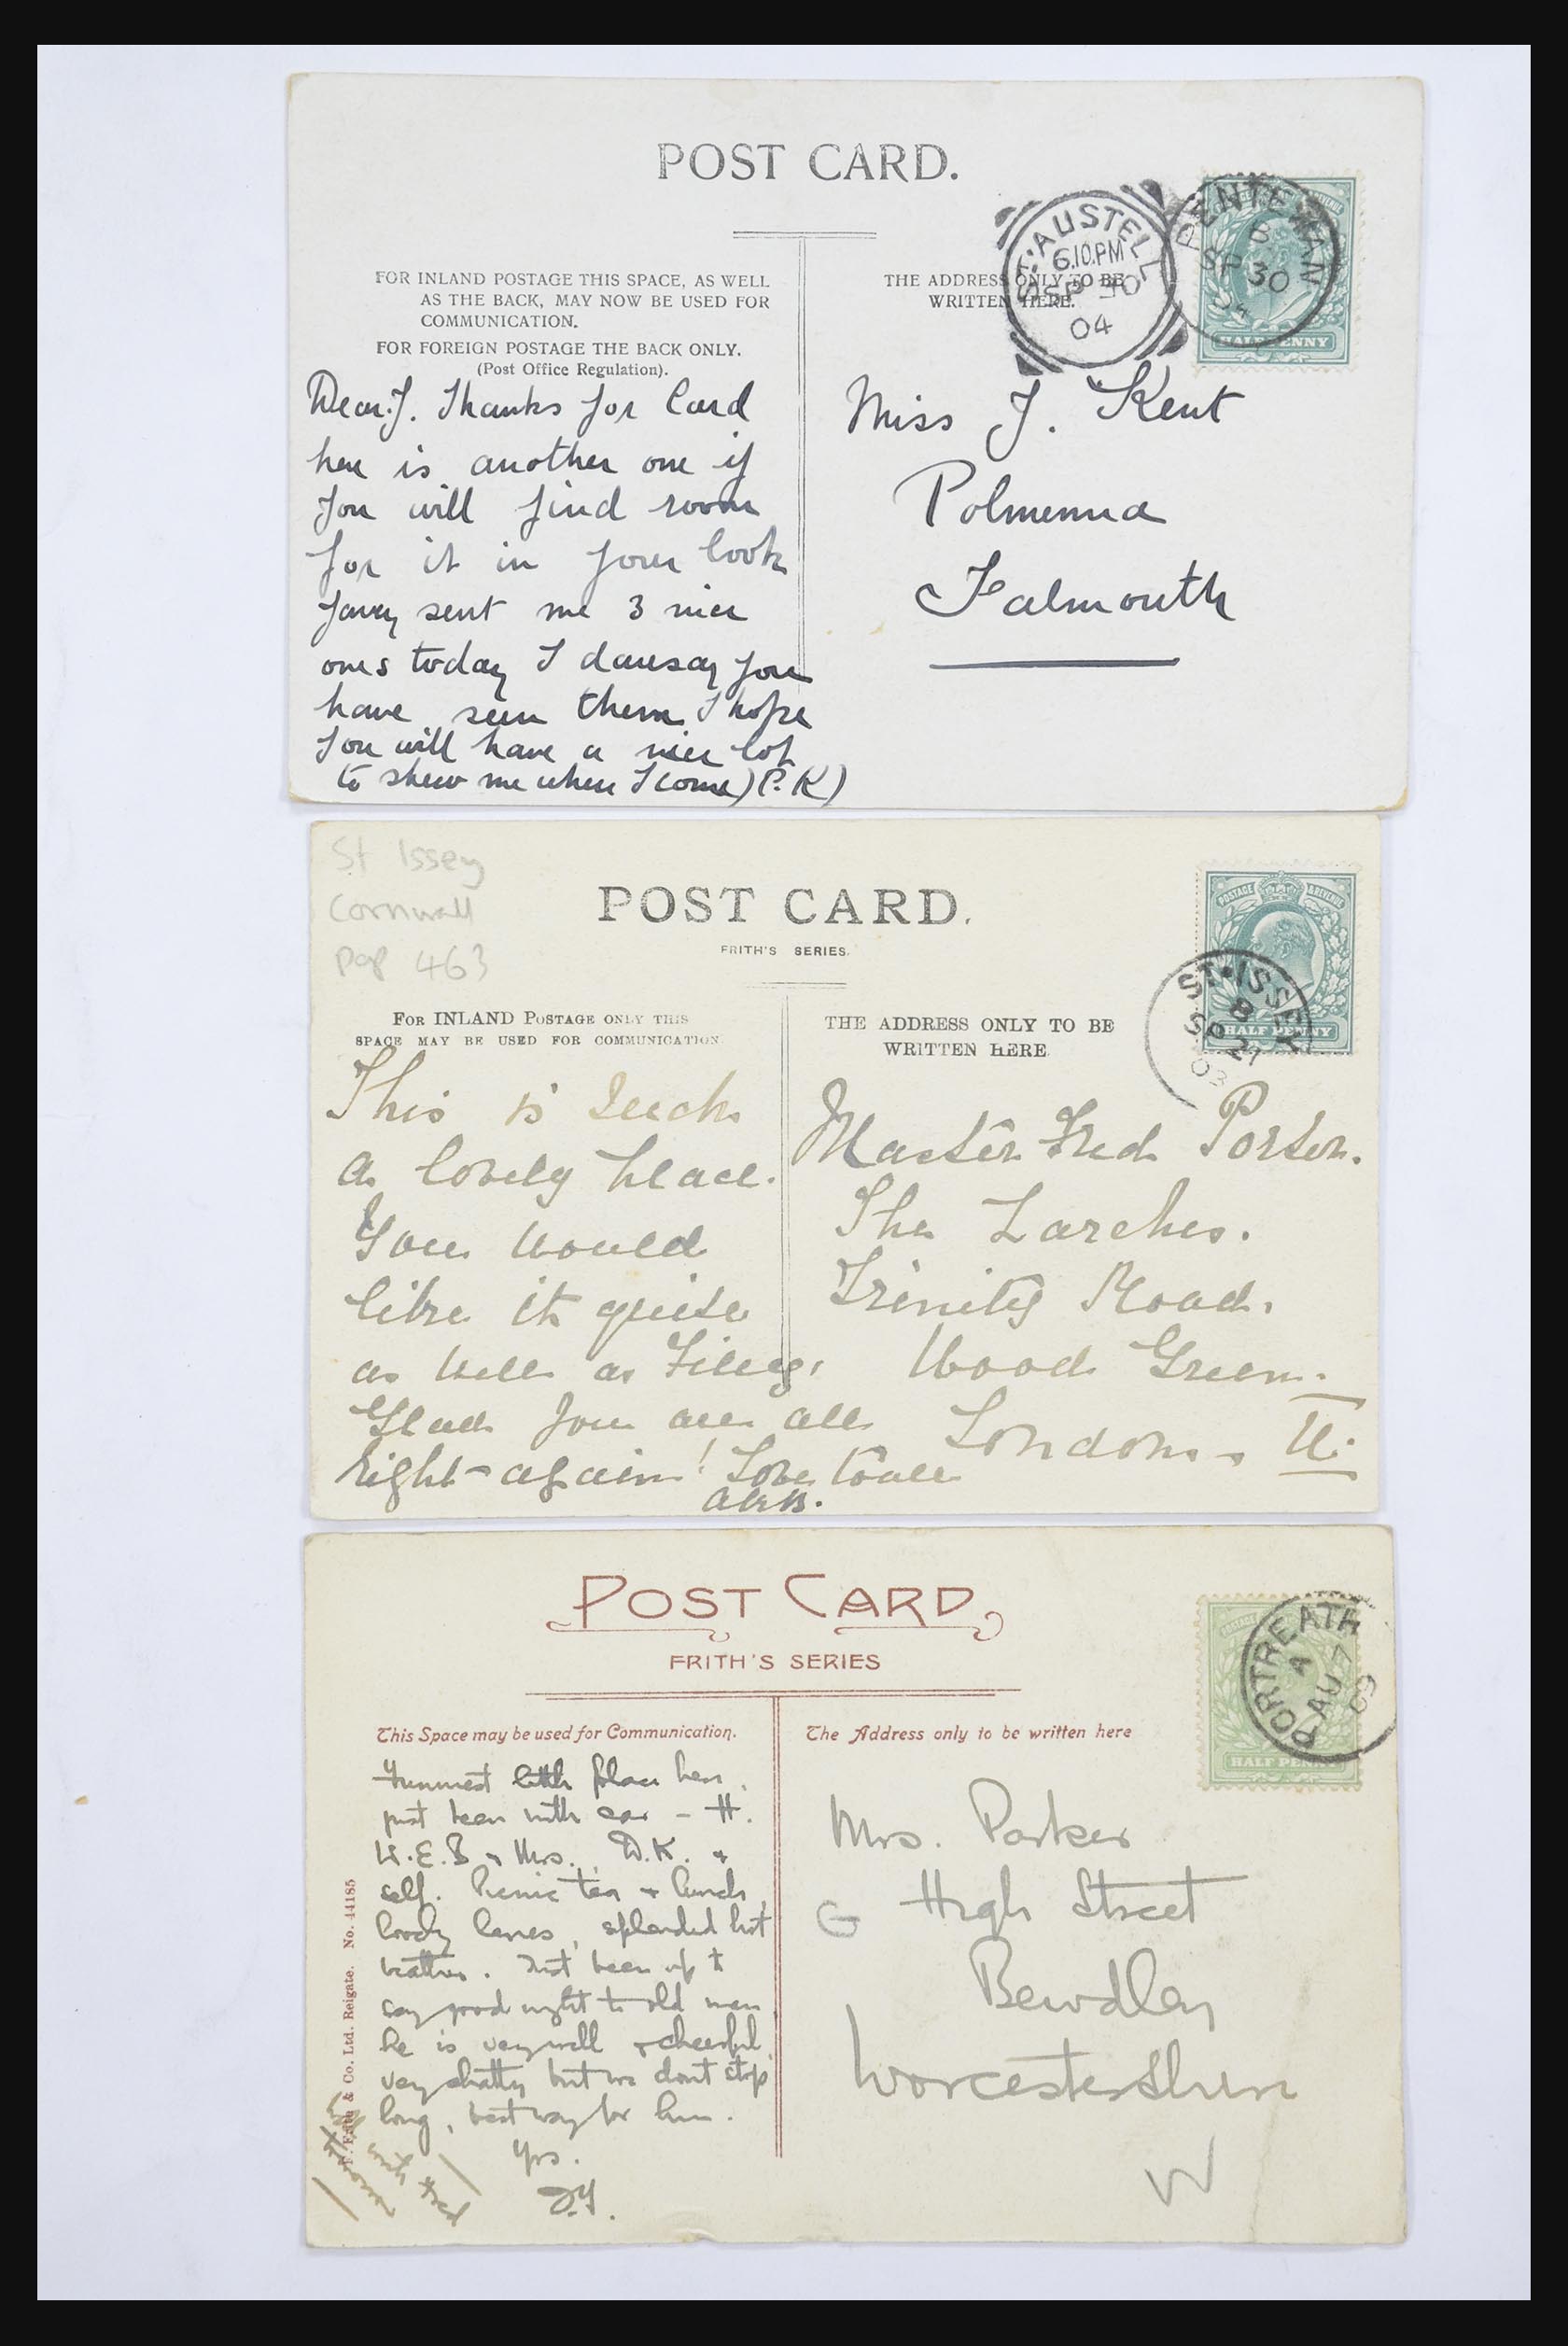 POST CARD.
FOR INLAND POSTAGE THIS SPACE, AS WELL
AS THE BACK, MAY NOW BE USED FOR
COMMUNICATION.
FOR FOREIGN POSTAGE THE BACK ONLY.
(Post Office Regulation).
THE ADDRESS ONLY TO BE
WRITTEN HERE.
ST. AUSTELL
6.10.PM
SEP 30
04
PENTEWAN
B
SP 30
04
HALFPENNY
Dear J. Thanks for Card
here is another one if
you will find room
for it in your book
sent me 3 nice
ones today I daresay you
have seen them I hope
you will have a nice lot
to shew me when I come) (P.K)
Miss J. Kent
Polmenna
Falmouth
St Issey
Cornwall
pop 463
POST CARD.
FRITH'S SERIES.
FOR INLAND POSTAGE ONLY THIS
SPACE MAY BE USED FOR COMMUNICATION.
THE ADDRESS ONLY TO BE
WRITTEN HERE.
POSTAGE REVENUE
HALF PENNY
ST. ISSEY
B
SP 21
03
This is such
a lovely place.
You would
like it quite
as well as Filey.
Glad you are all
right-again! Love to all
Master Fred Porter.
The Larches.
Trinity Road.
Wood Green.
London. N.
POST CARD
FRITH'S SERIES
This Space may be used for Communication.
The Address only to be written here
PORTREATH
A
AU 7
09
HALF PENNY
Funniest little place here,
just been with car - H.
W.E.B & Mrs. D.K. &
self. Picnic tea & lunch,
lovely lanes, splendid hot
weather. Just been up to
say good night to old man
he is very well & cheerful,
very chatty but we dont stop
long, best way for him.
Yrs.
F. Frith & Co. Ltd. Reigate. No. 44185
Mrs. Parker
High Street
Bewdley
Worcestershire
W